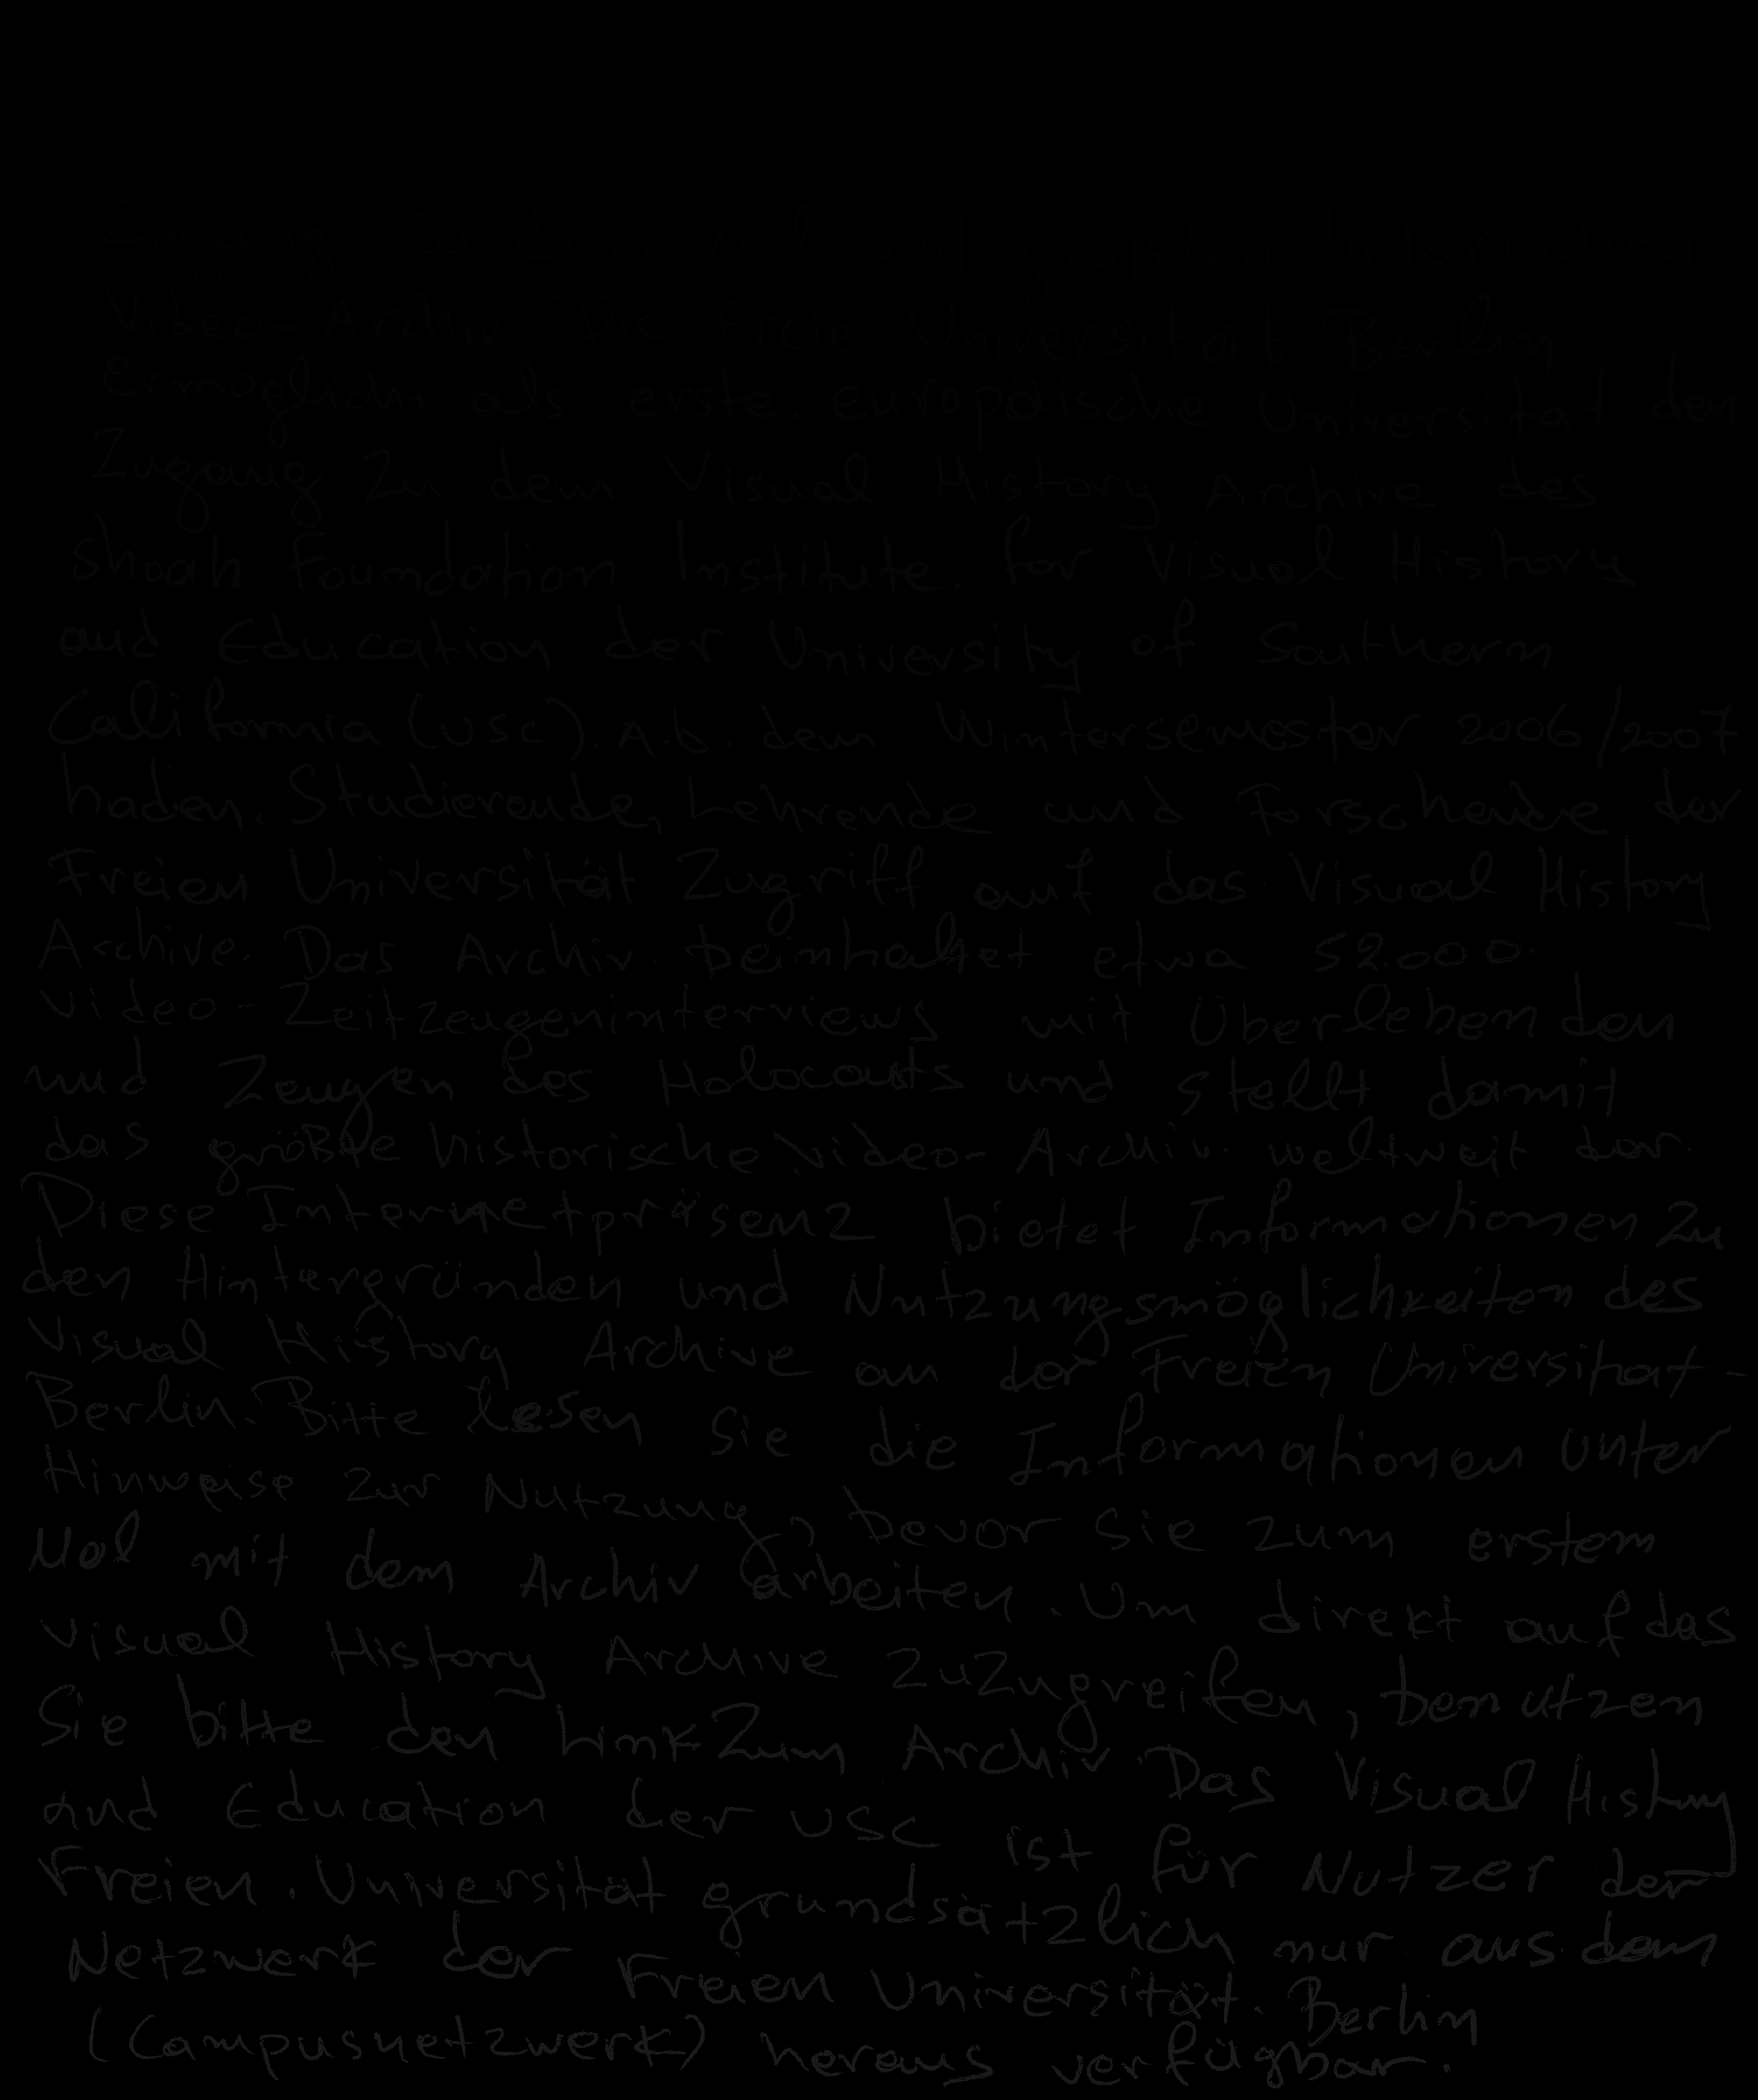 Zugang zu dem weltweit größten historischen
Video-Archiv Die Freie Universität Berlin
ermöglicht als erste europäische Universität den
Zugang zu dem Visual History Archive des
Shoah Foundation Institute for Visual History
and Education der University of Southern
California (USC). Ab dem Wintersemester 2006/2007
haben Studierende, Lehrende und Forschende der
Freien Universität Zugriff auf das Visual History
Archive. Das Archiv beinhaltet etwa 52.000
Video-Zeitzeugeninterviews mit Überlebenden
und Zeugen des Holocausts und stellt damit
das größte historische Video-Archiv weltweit dar.
Diese Internetpräsenz bietet Informationen zu
den Hintergründen und Nutzungsmöglichkeiten des
Visual History Archive an der Freien Universität-
Berlin. Bitte lesen Sie die Informationen unter
Hinweise zur Nutzung, bevor Sie zum erstem
Mal mit dem Archiv arbeiten. Um direkt auf das
Visual History Archive zuzugreifen, benutzen
Sie bitte den Link Zum Archiv. Das Visual History
and Education der USC ist für Nutzer der
Freien Universität grundsätzlich nur aus dem
Netzwerk der Freien Universität Berlin
(Campusnetzwerk) heraus verfügbar.